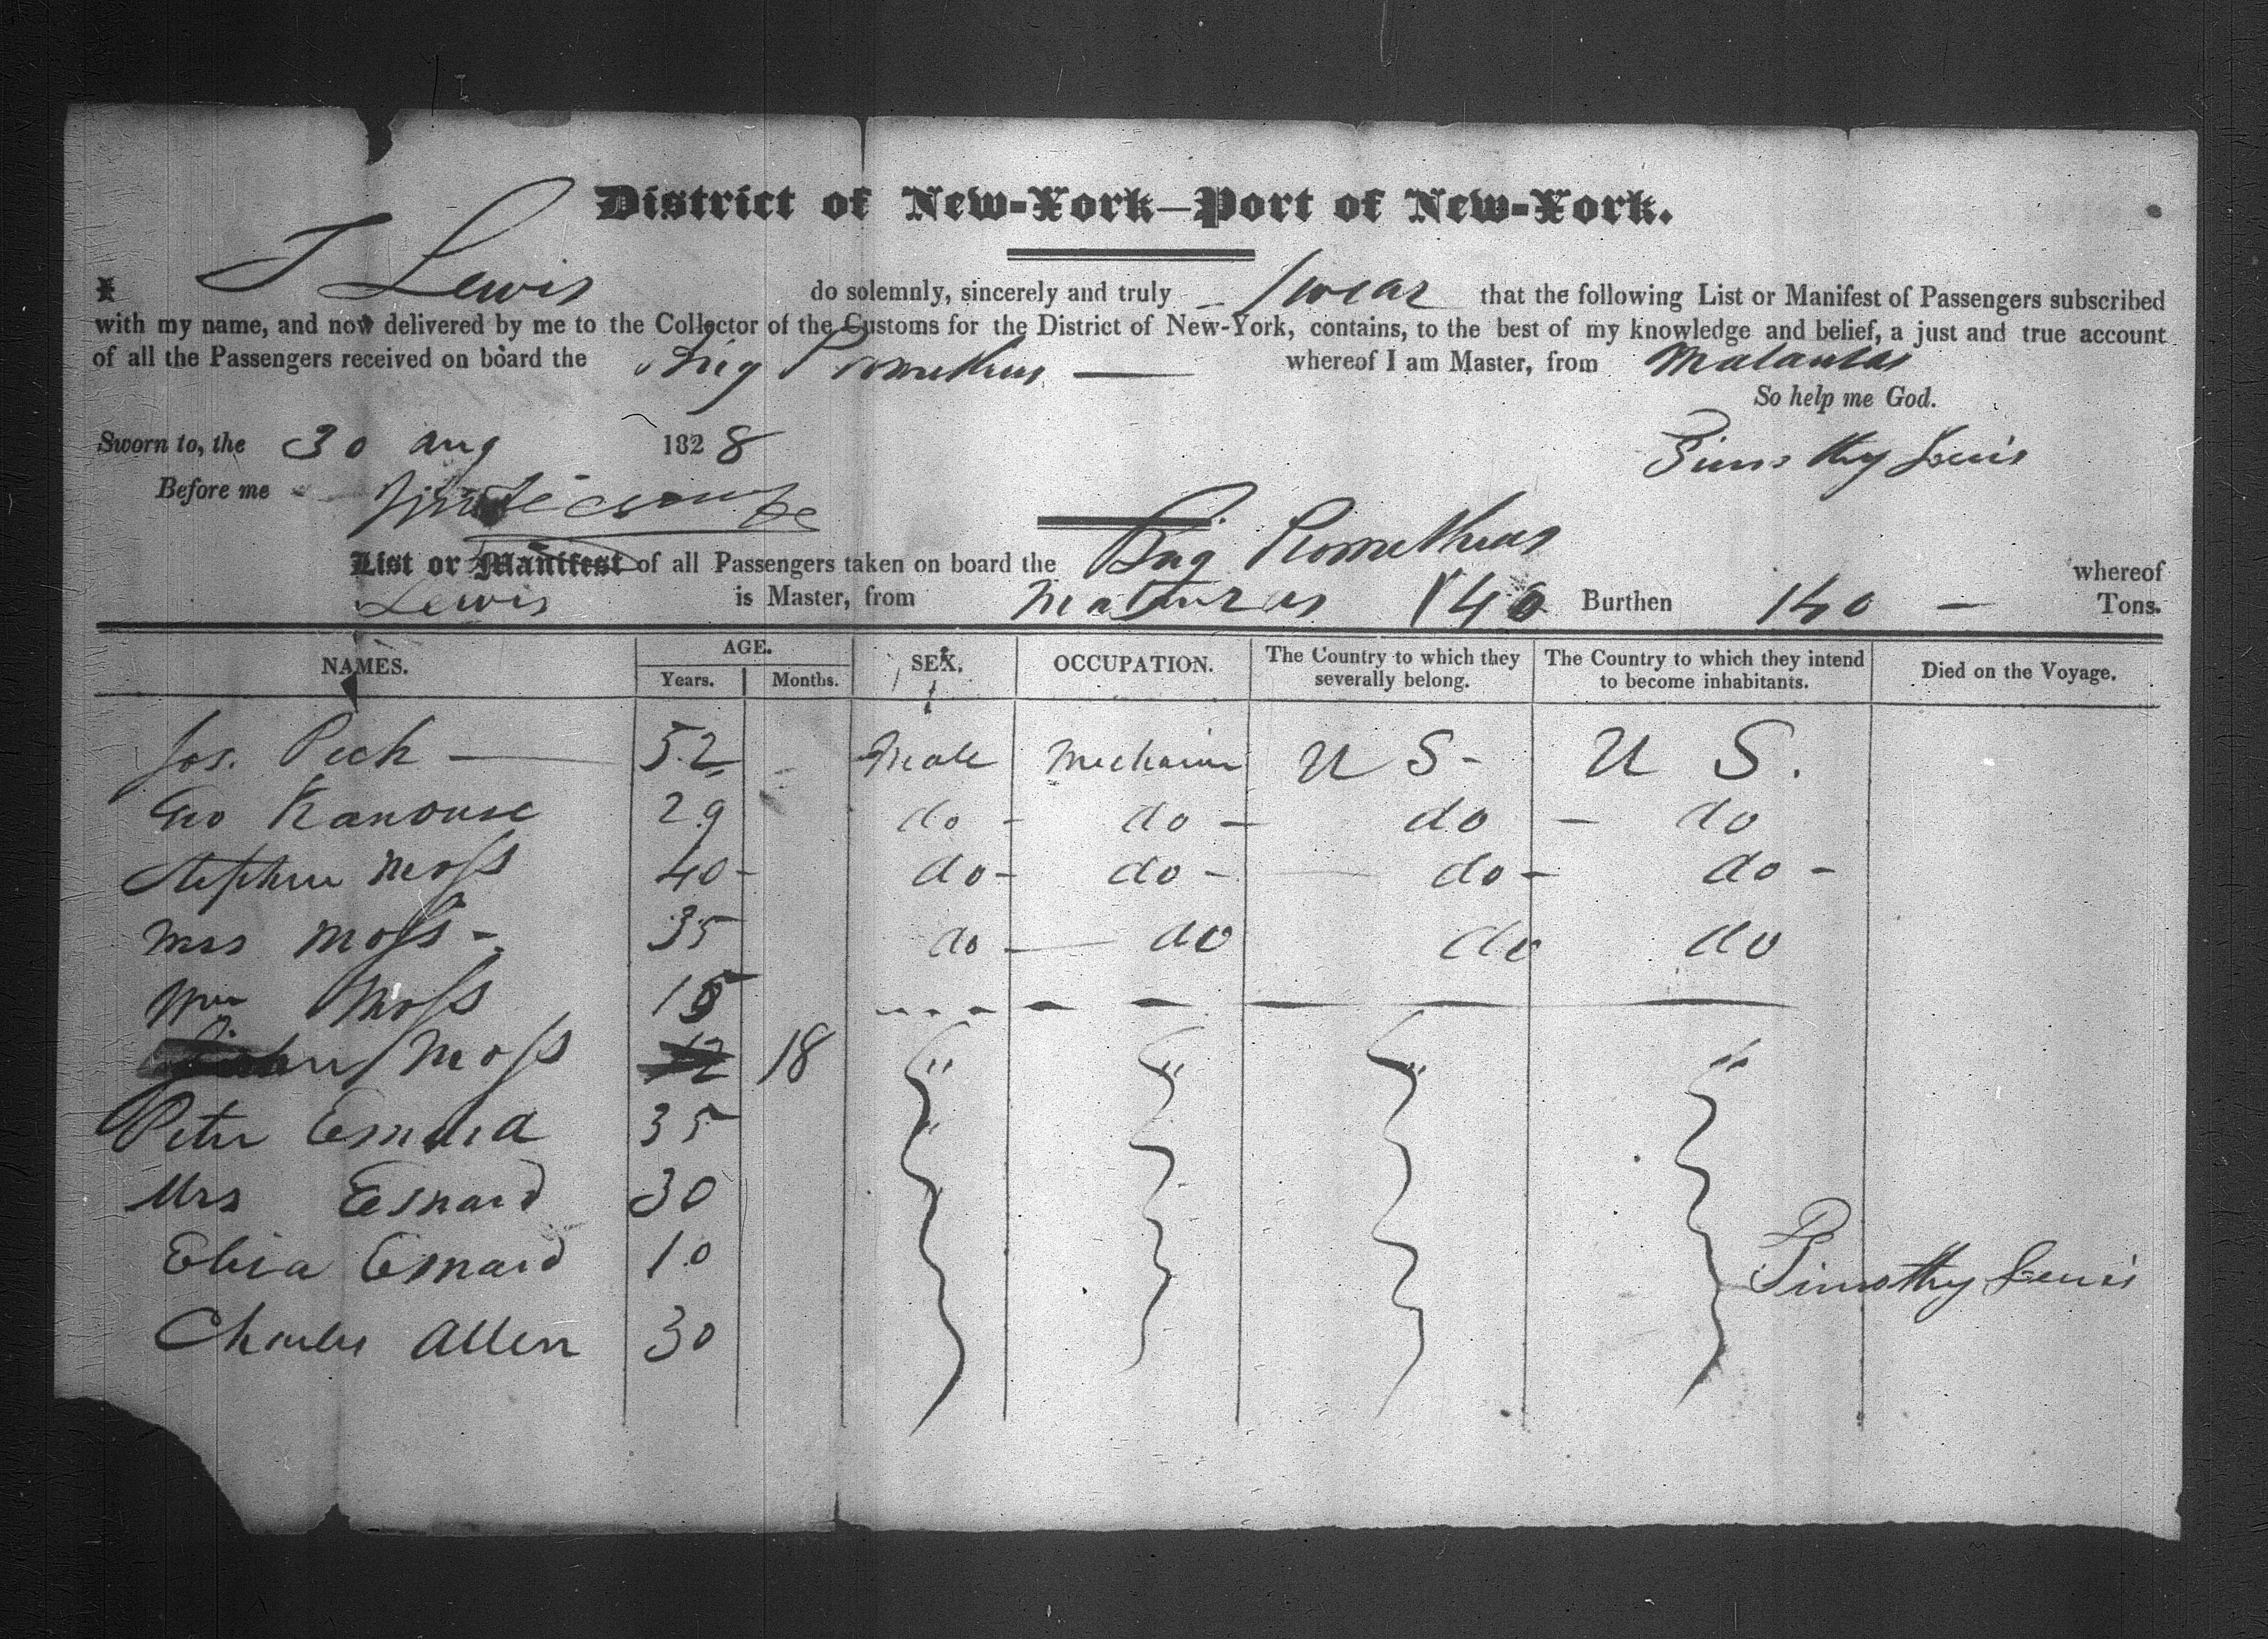 District of New-York—Port of New-York.
I T Lewis do solemnly, sincerely and truly swear that the following List or Manifest of Passengers subscribed
with my name, and now delivered by me to the Collector of the Customs for the District of New-York, contains, to the best of my knowledge and belief, a just and true account
of all the Passengers received on board the Brig Prometheus — whereof I am Master, from Matanzas
So help me God.
Sworn to, the 30 Aug 1828 Timothy Lewis
Before me
List or Manifest of all Passengers taken on board the Brig Prometheus whereof
Lewis is Master, from Matanzas 140 Burthen 140 — Tons.
NAMES. AGE. Years. Months. SEX. OCCUPATION. The Country to which they severally belong. The Country to which they intend to become inhabitants. Died on the Voyage.
Jos. Peck — 52 Male Mechanic U S - U S.
Geo Kanouse 29 do - do - do - do
Stephen Moss 40 - do - do - do - do -
Mrs Moss - 35 do - do do do
Wm Moss 15
Moss 12 18 " " " "
Peter Esnard 35 "
Mrs Esnard 30
Eliza Esnard 10 Timothy Lewis
Charles Allen 30